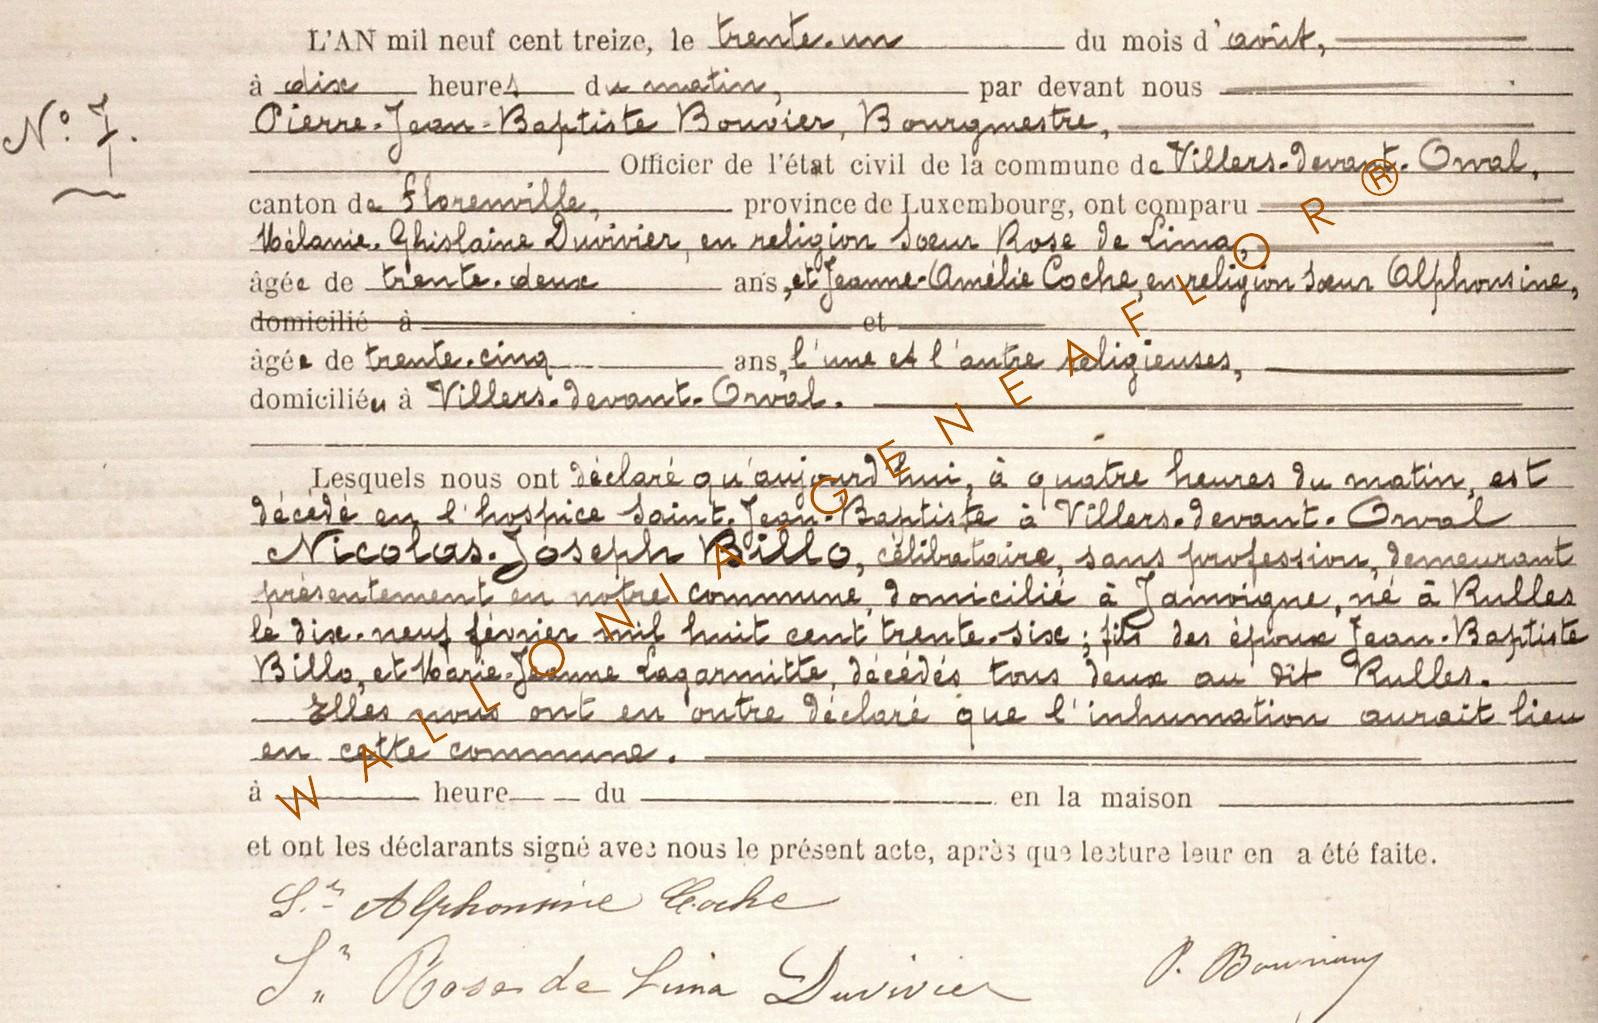 L'AN mil neuf cent treize, le trente-un du mois d'août,
à dix heures du matin, par devant nous
N° 7.
Pierre-Jean-Baptiste Bouvier, Bourgmestre,
Officier de l'état civil de la commune de Villers-devant-Orval,
canton de Florenville, province de Luxembourg, ont comparu
Mélanie-Ghislaine Duvivier, en religion Sœur Rose de Lima,
âgée de trente-deux ans, et Jeanne-Amélie Coche, en religion Sœur Alphonsine,
domicilié à et
âgée de trente-cinq ans, l'une et l'autre religieuses,
domiciliées à Villers-devant-Orval.
Lesquels nous ont déclaré qu'aujourd'hui, à quatre heures du matin, est
décédé en l'hospice Saint-Jean-Baptiste à Villers-devant-Orval
Nicolas-Joseph Billo, célibataire, sans profession, demeurant
présentement en notre commune, domicilié à Jamoigne, né à Rulles
le dix-neuf février mil huit cent trente-six ; fils des époux Jean-Baptiste
Billo, et Marie-Jeanne Lagarmitte, décédés tous deux au dit Rulles.
Elles nous ont en outre déclaré que l'inhumation aurait lieu
en cette commune.
à heure du en la maison
et ont les déclarants signé avec nous le présent acte, après que lecture leur en a été faite.
Sr Alphonsine Coche
Sr Rose de Lima Duvivier P. Bouvier
WALLONIA-GENEAFLOR®